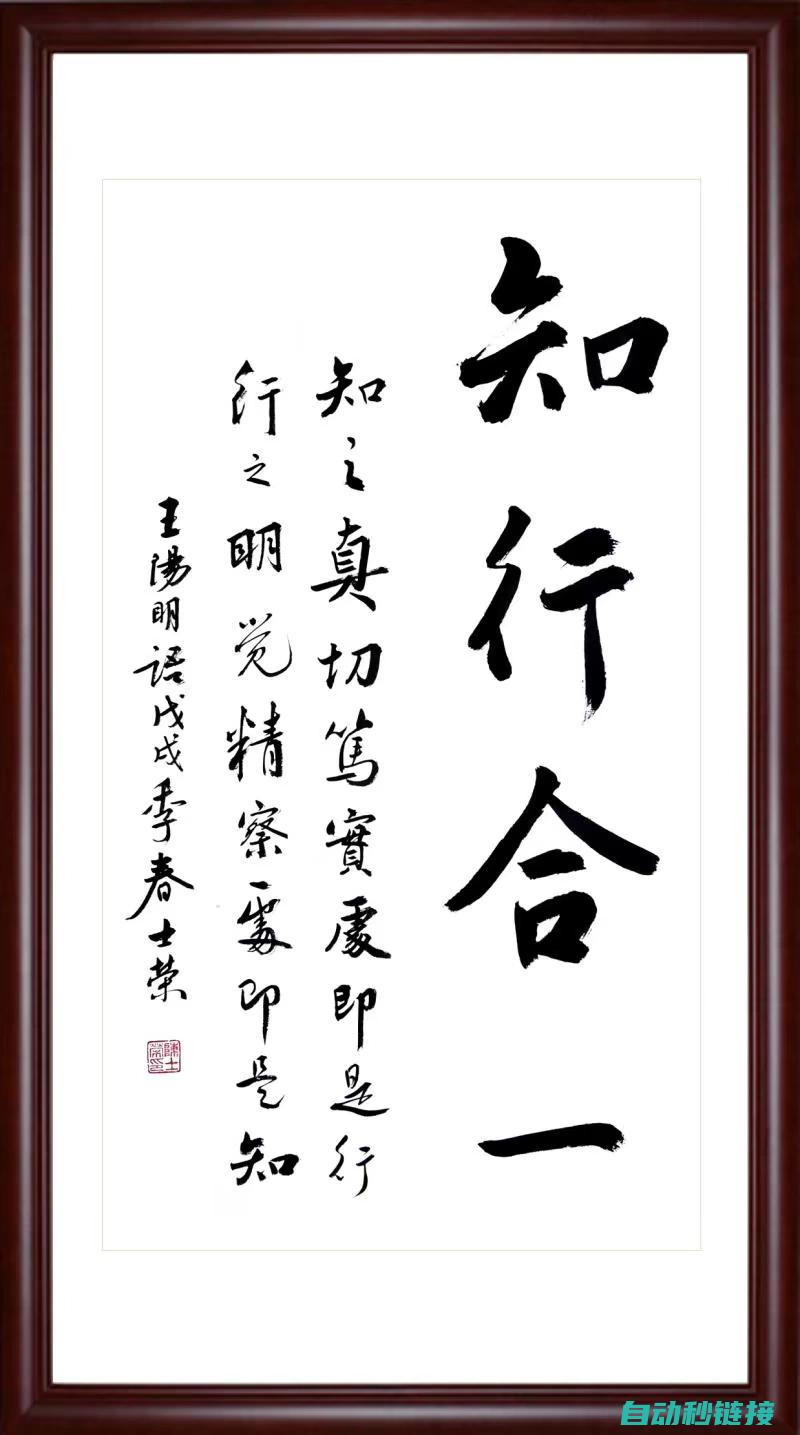 知行合一
知之真切篤實處即是行
行之明觉精察處即是知
王陽明語戊戌季春士荣
陳士荣印
自动秒链接